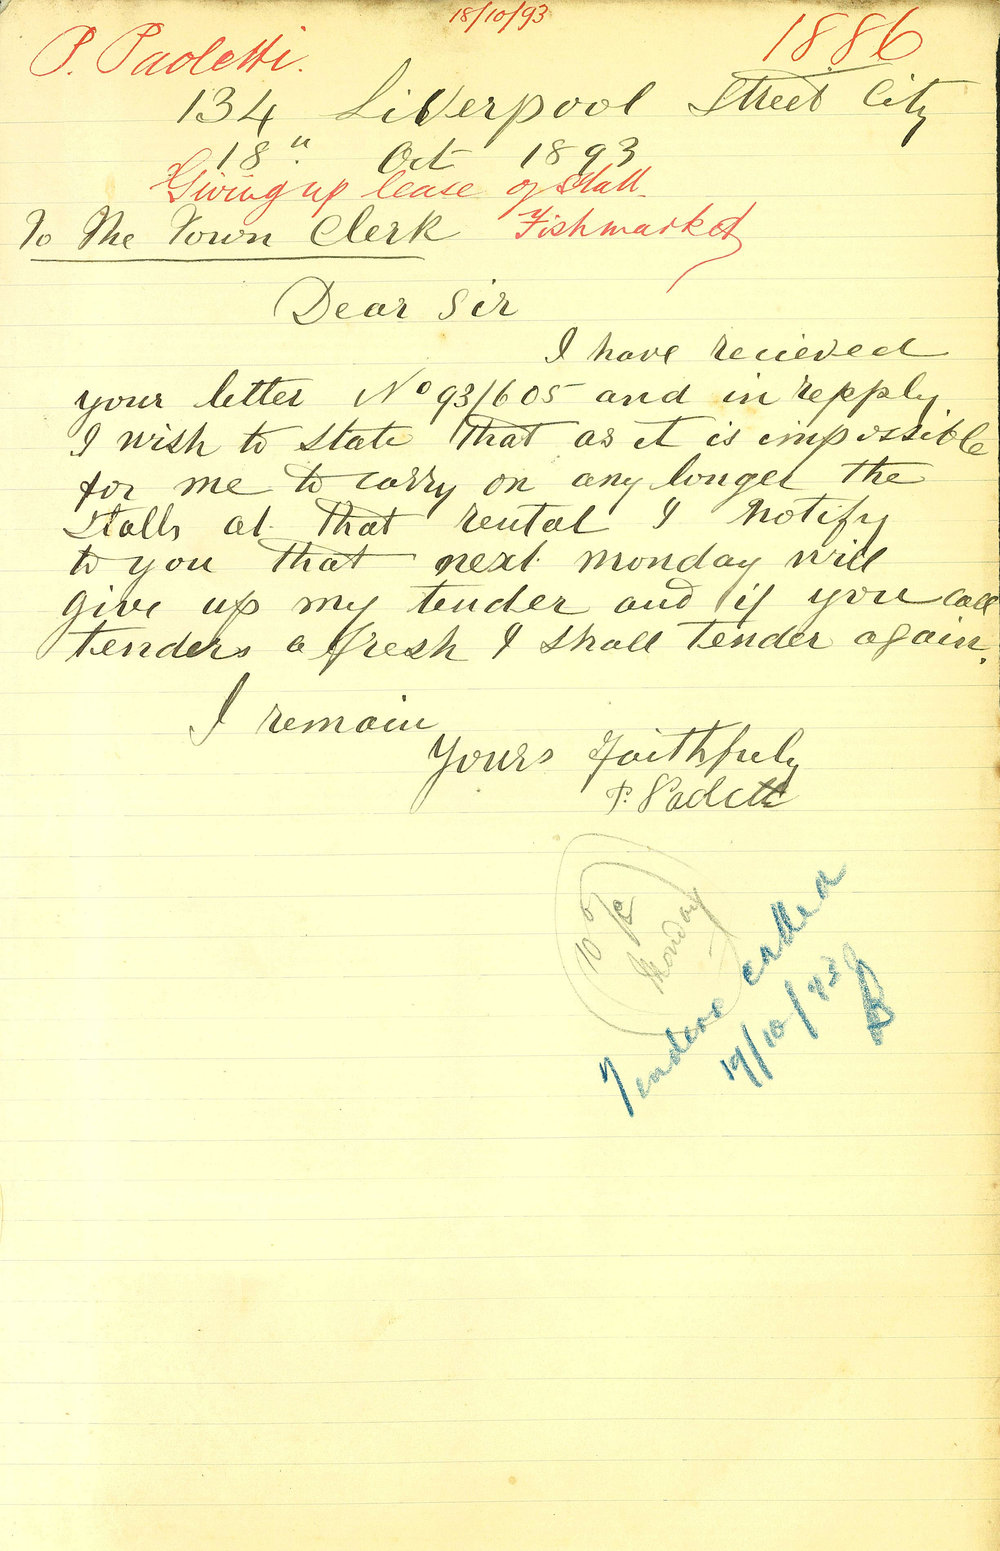 18/10/93
P. Paoletti.
1886
134 Liverpool Street City
18th Oct 1893
Giving up lease of Stall
Fishmarket
To The Town Clerk
Dear Sir
I have recieved
your letter No 93/605 and in repply
I wish to state that as it is impossible
for me to carry on any longer the
Stalls at that rental I notify
to you that next monday will
give up my tender and if you call
tenders afresh I shall tender again.
I remain
Yours Faithfuly
P. Paoletti
Monday
Tenders called
19/10/93